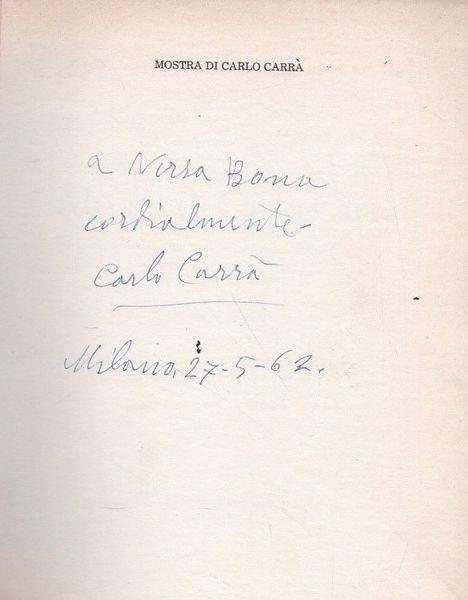 MOSTRA DI CARLO CARRÀ
a Nersa Bona
cordialmente-
Carlo Carrà
Milano, 27-5-62.